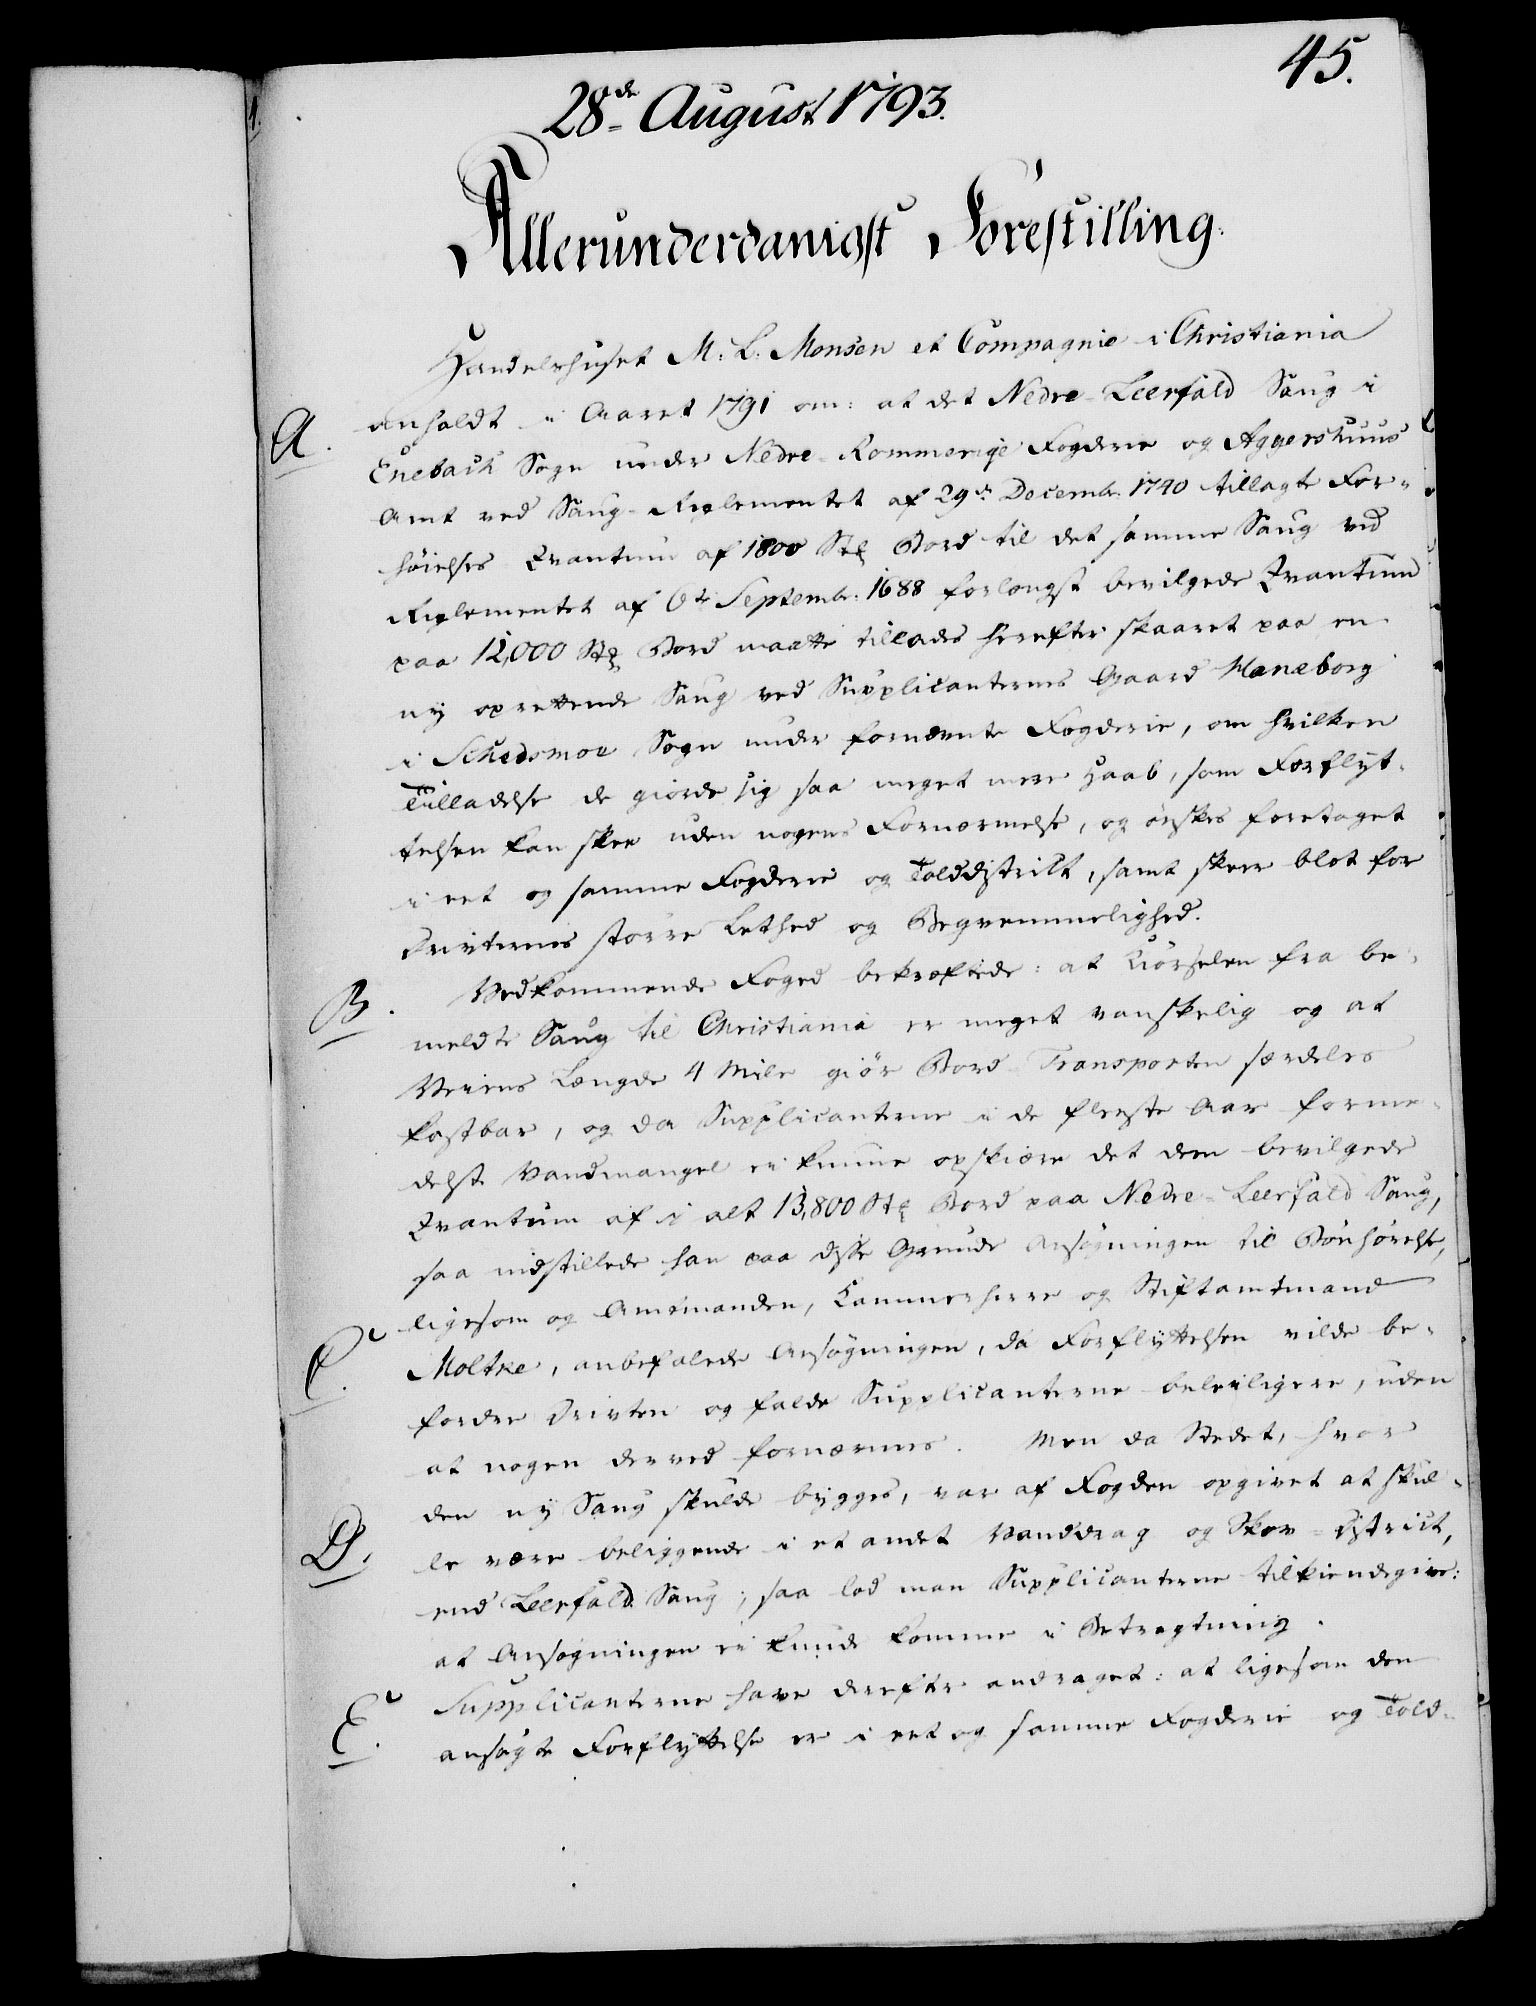 45.
28de August 1793.
Allerunderdanigst Forestilling.
Handelshuset M: L: Monsen et Compagnie i Christiania
A. anholdt i Aaret 1791 om: at det Nedre-Leerfald Saug i
Enebach Sogn under Nedre-Rommerige Fogderie og Aggershuus
Amt ved Saug-Reglementet af 29de Decembr. 1740 tillagte For-
høielses Qvantum af 1800 Stk Bord til det samme Saug ved
Reglementet af 6te Septembr: 1688 forlængst bevilgede Qvantum
paa 12,000 Stk Bord maatte tillades herefter skaaret paa en
ny oprettende Saug ved Supplicanternes Gaard Manæborg
i Schedsmoe Sogn under fornævnte Fogderie, om hvilken
Tilladelse de giorde sig saa meget mere Haab, som Forflyt-
telsen kan skee uden nogens Fornærmelse, og ønskes foretaget
i eet og samme Fogderie og Tolddistrikt, samt skeer blot for
Drivternes større Lethed og Beqvemmelighed.
B. Vedkommende Foged bekræftede: at Kiørselen fra be-
meldte Saug til Christiania er meget vanskelig og at
Veiens Længde 4 Mile giør Bord-Transporten særdeles
kostbar, og da Supplicanterne i de fleeste Aar forme-
delst Vandmangel ei kunne opskiære det dem bevilgede
Qvantum af i alt 13,800 Stk Bord paa Nedre-Leerfald Saug,
saa indstillede han paa disse Grunde Ansøgningen til Bønhørelse,
ligesom og Amtmanden, Kammerherre og Stiftamtmand
C. Moltke, anbefalede Ansøgningen, da Forflyttelsen vilde be-
fordre Drivten og falde Supplicanterne beleiligere, uden
at nogen derved fornærmes. Men da Stedet, hvor
den ny Saug skulde bygges, var af Fogden opgivet at skul-
D. le være beliggende i et andet Vanddrag og Skov-District,
end Leerfald Saug; saa lod man Supplicanterne tilkiendegive:
at Ansøgningen ei kunde komme i Betragtning.
E. Supplicanterne have derefter andraget: at ligesom den
ansøgte Forflyttelse er i eet og samme Fogderie og Told-